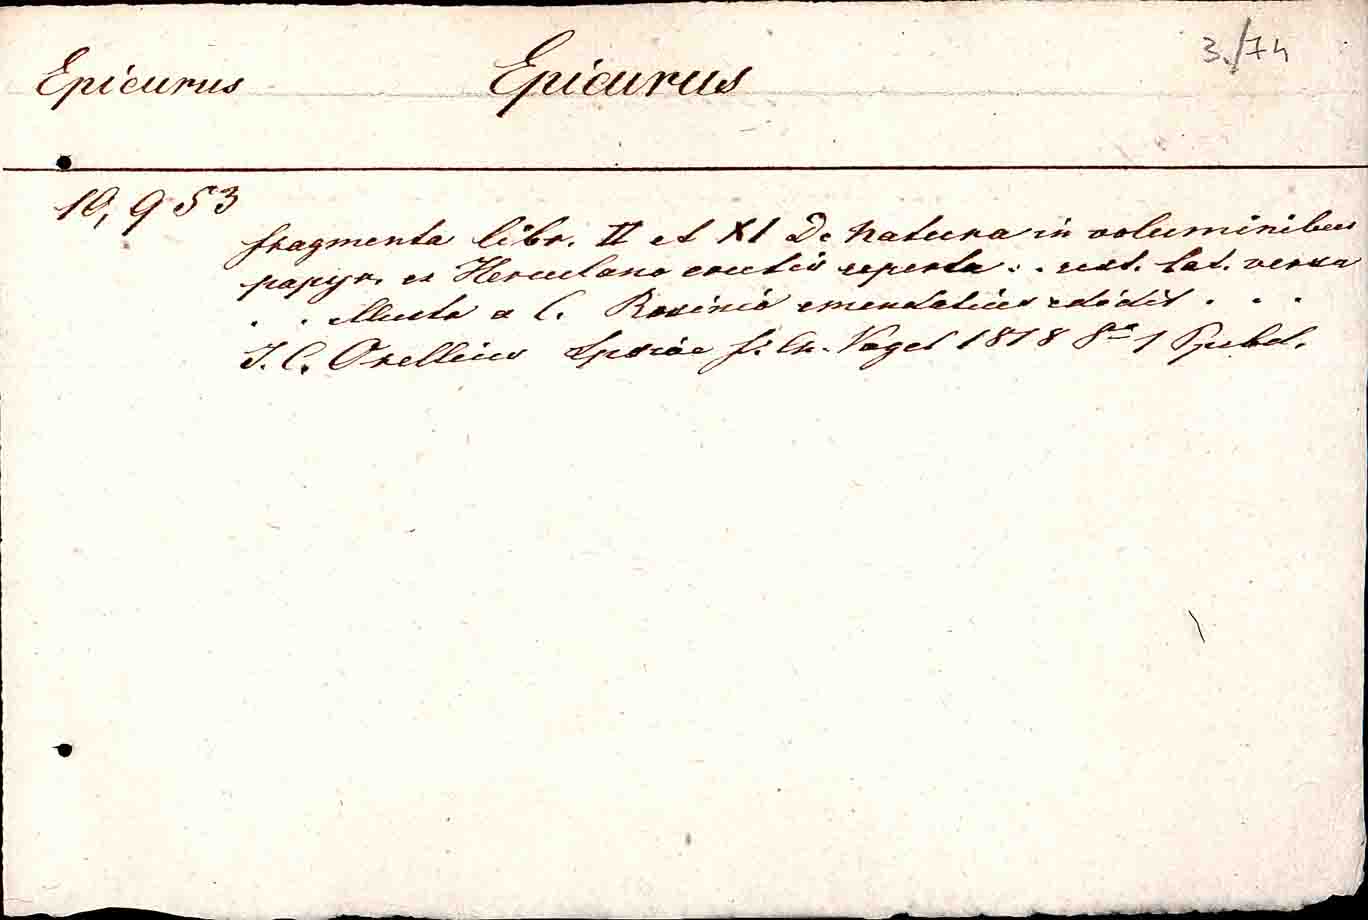 Epicurus Epicurus 3./74
10,953
fragmenta libr. II et XI De Natura in voluminibus
papyr. ex Herculano erutis reperta . . rest. lat. versa
. . illustr a C. Rosinio emendatius edidit . . .
J. C. Orellius Lipsiae f. Ch. Vogel 1818 8°